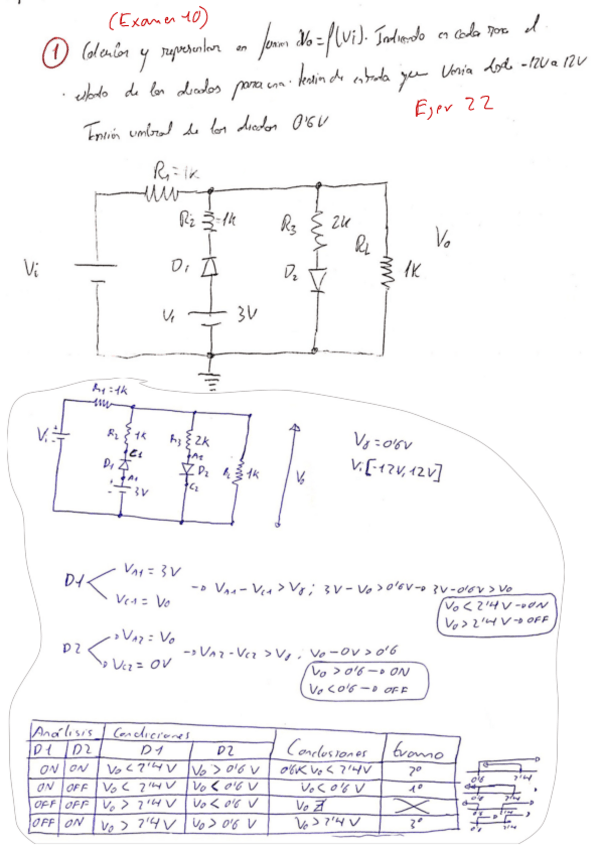 (Examen 10)
① Calcular y representar en forma Vo=f(Vi). Indicando en cada zona el
estado de los diodos para una tensión de entrada que varia desde -12V a 12V
Ejer 22
Tensión umbral de los diodos 0'6V
R1=1K
R2=1K
R3
2K
RL
1K
Vo
Vi
D1
D2
V1
3V
R1=1k
Vi
R2
1k
R3
2k
C1
A2
D1
D2
RL
1k
A1
C2
3V
Vo
Vγ=0'6V
Vi[-12V,12V]
D1
VA1=3V
VC1=Vo
→ VA1-VC1>Vγ; 3V-Vo>0'6V→3V-0'6V>Vo
Vo<2'4V→ON
Vo>2'4V→OFF
D2
VA2=Vo
VC2=0V
→VA2-VC2>Vγ. Vo-0V>0'6
Vo>0'6→ON
Vo<0'6→OFF
Análisis Condiciones
D1 D2 D1 D2 Conclusiones tramo
ON ON Vo<2'4V Vo>0'6V 0'6<Vo<2'4V 2º
ON OFF Vo<2'4V Vo<0'6V Vo<0'6V 1º
OFF OFF Vo>2'4V Vo<0'6V Vo ∄
OFF ON Vo>2'4V Vo>0'6V Vo>2'4V 3º
0'6 2'4
0'6 2'4
0'6 2'4
0'6 2'4